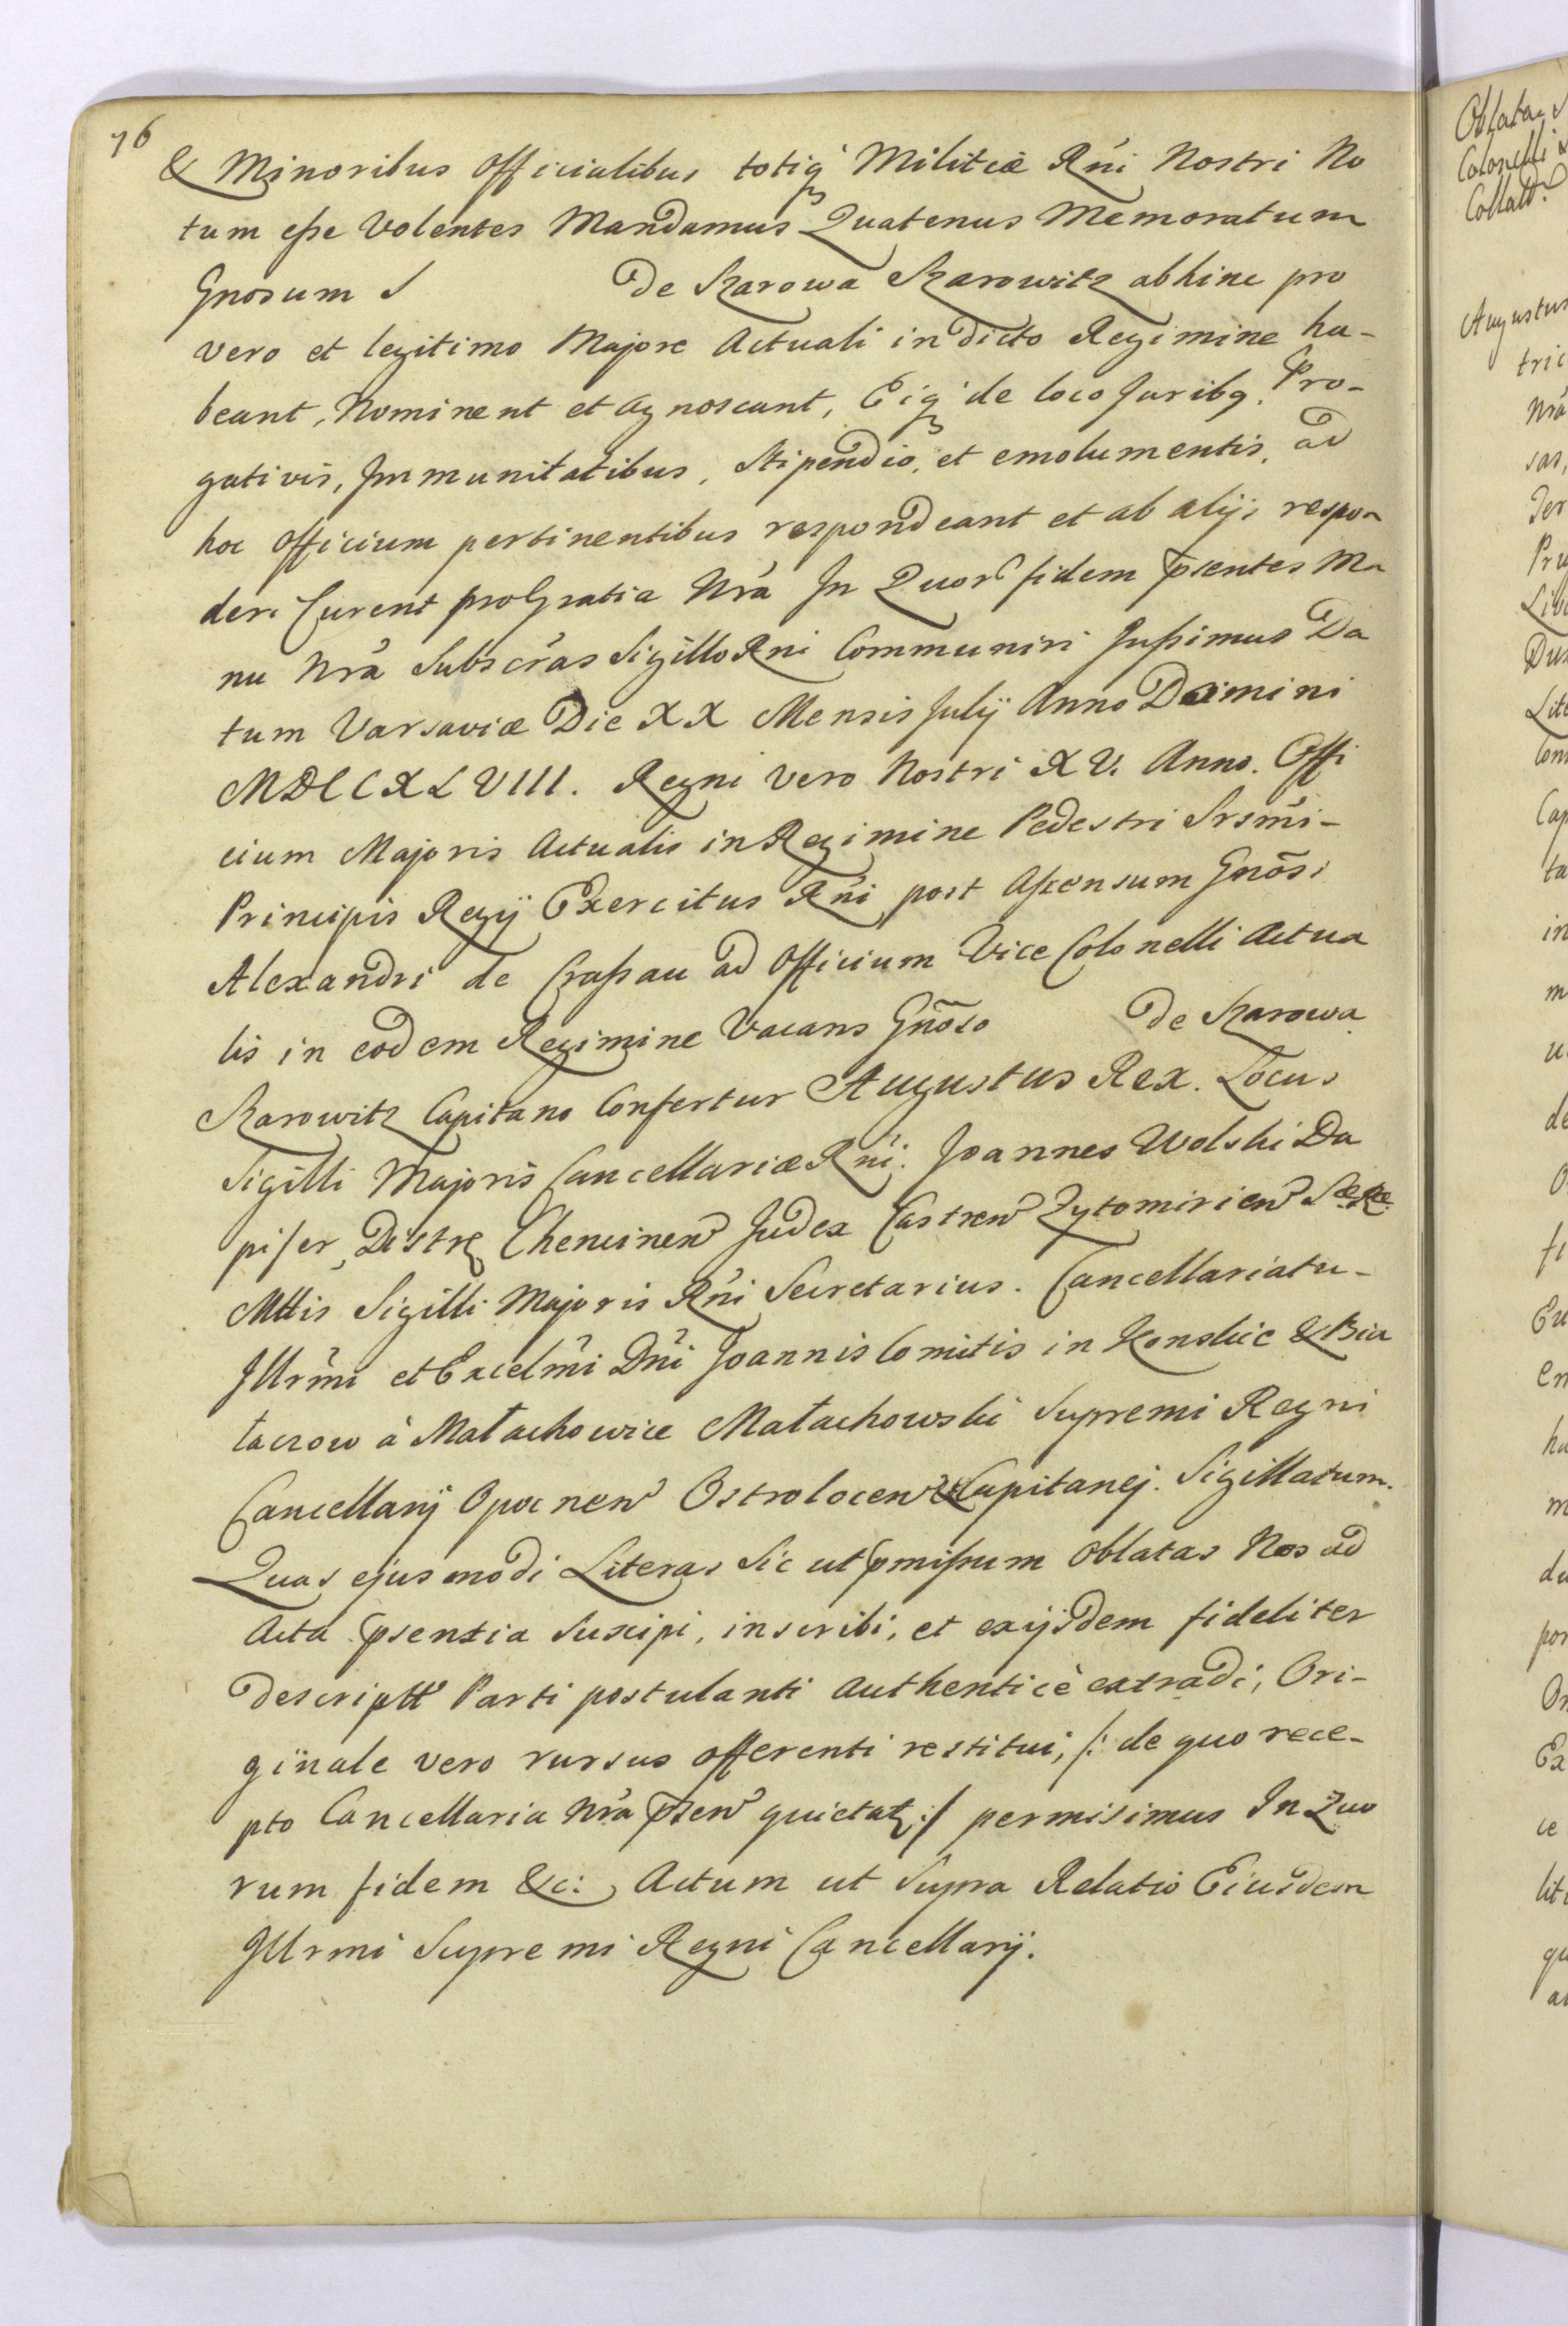 76
& Minoribus Officialibus totiq́ Militiæ Rńi Nostri No
tum eße Volentes Mandamus Quatenus Memoratum
Gnosum S de Karowa Karowitz abhinc pro
vero et legitimo Majore Actuali in dicto Regimine ha-
beant, Nominent et Agnoscant, Eiq́ de loco Juribq. Pro-
gativis, Immunitatibus, Stipendio, et emolumentis, ad
hoc Officium pertinentibus respondeant et ab alijs respon
deri Curent pro Gratia Nrá In Quor fidem psentes Ma
nu Nrá Subscrás Sigillo Rni Communiri Jußimus Da
tum Varsaviæ Die XX Mensis Julij Anno Domini
MDCCXLVIII. Regni vero Nostri XV. Anno. Offi
cium Majoris Actualis in Regimine Pedestri Srsmi-
Principis Regij Exercitus Rńi post Ascensum Gnõsi
Alexandri de Craßau ad Officium Vice Colonelli Actua
lis in eodem Regimine Vacans Gñoso de Karowa
Karowitz Capitano Confertur Augustus Rex. Locus
Sigilli Majoris Cancellariæ Rńi. Joannes Wolski Da
pifer, Distrę Chencinen Judex Castren Zytomirien Sæ Ræ
Mttis Sigilli Majoris Rńi Secretarius. Cancellariatu-
Illrm̃i et Excelm̃i Dñi Joannis Comitis in Konskie & Bia
łaczow à Małachowice Małachowski Supremi Regni
Cancellarij Opocnen Ostrolocen & Capitanej. Sigillatum.
Quas ejusmodi Literas Sic ut pmißum oblatas Nos ad
Acta psentia Suscipi, inscribi, et exijsdem fideliter
Descriptt Parti postulanti authenticè extradi, Ori-
ginale vero rursus offerenti restitui, /: de quo rece-
pto Cancellaria Nrá psen quietat :/ permisimus In Quo
rum fidem &c: Actum ut Supra Relatio Eiusdem
Illrmi Supremi Regni Cancellarij.
Oblata
Colonelli
Collatt
Augustus